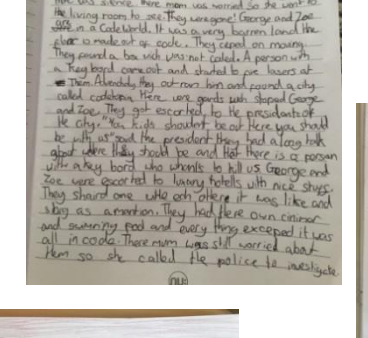 silence there mom was worried So she went to
the living room to see. They were gone! George and Zoe
are in a Code World. It was a very barren land the
floor is made out of code. They ceped on moving
They found a box wich was not coded. A person with
a Key bord came out and started to fire lasers at
Them. they out rown him and found a city
called Here were gards wich stoped George
and Zoe. They got escorted to He presidents of
He city. "You kids shoudent be out Here you should
be with us" said the president they had a long talk
about where they should be and Hat there is a person
with a key bord who whants to kill us George and
Zoe were escorted to luxury hotells with nice stuff.
They shaird one with ech othere it was like and
sbig as a mantion. They had there own cinimor
and swimming pool and every thing exceped it was
all in code. There mum was still worried about
them so she called the police to investigate